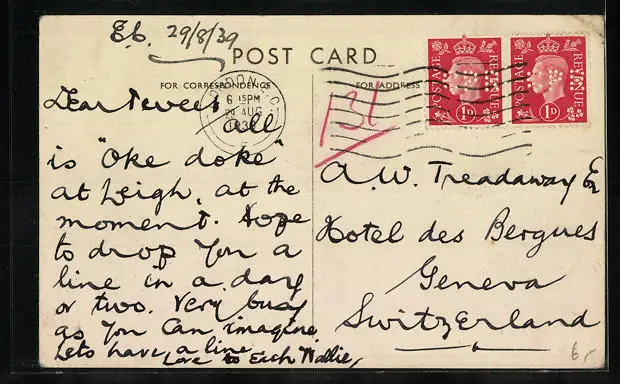 E.C. 29/8/39
POST CARD
FOR CORRESPONDENCE
FOR ADDRESS
LONDON
6 15PM
29 AUG
1939
POSTAGE REVENUE
1D
POSTAGE REVENUE
1D
131
Dear
All
is "Oke doke"
at Leigh, at the
moment. Hope
to drop you a
line in a day
or two. Very busy
as you can imagine.
Lets have a line.
Love to Each Wallie,
A.W. Treadaway Esq
Hotel des Bergues
Geneva
Switzerland
6/-